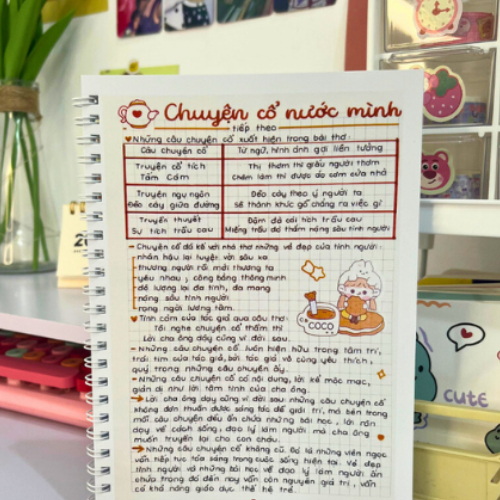 Chuyện cổ nước mình
tiếp theo
Những câu chuyện cổ xuất hiện trong bài thơ:
Câu chuyện cổ
Từ ngữ, hình ảnh gợi liên tưởng
Truyện cổ tích
Tấm Cám
Thị thơm thì giấu người thơm
Chăm làm thì được áo cơm cửa nhà
Truyện ngụ ngôn
Đẽo cày giữa đường
Đẽo cày theo ý người ta
Sẽ thành khúc gỗ chẳng ra việc gì
Truyền thuyết
Sự tích trầu cau
Đậm đà cái tích trầu cau
Miếng trầu đỏ thắm nặng sâu tình người
Chuyện cổ đã kể với nhà thơ những vẻ đẹp của tình người:
nhân hậu lại tuyệt vời sâu xa
thương người rồi mới thương ta
yêu nhau, công bằng thông minh
độ lượng đa tình, đa mang
nặng sâu tình người
rạng ngời lương tâm.
COCO
Tình cảm của tác giả qua câu thơ:
Tôi nghe chuyện cổ thầm thì
Lời cha ông dạy cũng vì đời sau.
- Những câu chuyện cổ luôn hiện hữu trong tâm trí,
trái tim của tác giả, bởi tác giả vô cùng yêu thích,
quý trọng những câu chuyện ấy.
- Những câu chuyện cổ có nội dung, lời kể mộc mạc,
giản dị như lời tâm tình của cha ông.
Lời cha ông dạy cũng vì đời sau: những câu chuyện cổ
không đơn thuần được sáng tác để giải trí, mà bên trong
mỗi câu chuyện đều ẩn chứa những bài học, lời răn
dạy về cách sống, đạo lý làm người mà cha ông
muốn truyền lại cho con cháu.
Những câu chuyện cổ không cũ. Đó là những viên ngọc
vẫn tiếp tục tỏa sáng trong cuộc sống hiện tại. Vẻ đẹp
tình người và những bài học về đạo lý làm người ẩn
chứa trong đó đến nay vẫn còn nguyên giá trị, vẫn
có khả năng giáo dục thế hệ trẻ.
CUTE